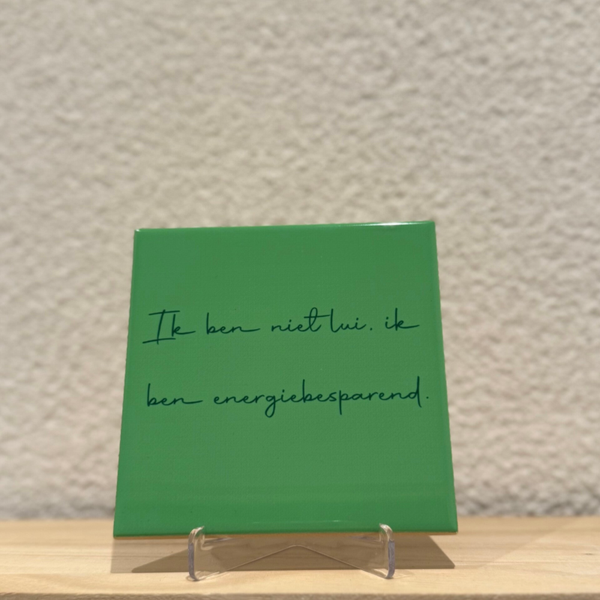 Ik ben niet lui. ik
ben energiebesparend.